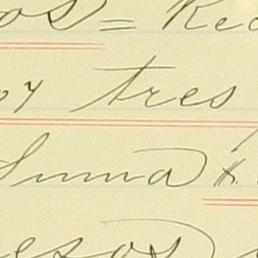 os = Rec
oy tres
Suma #
esos